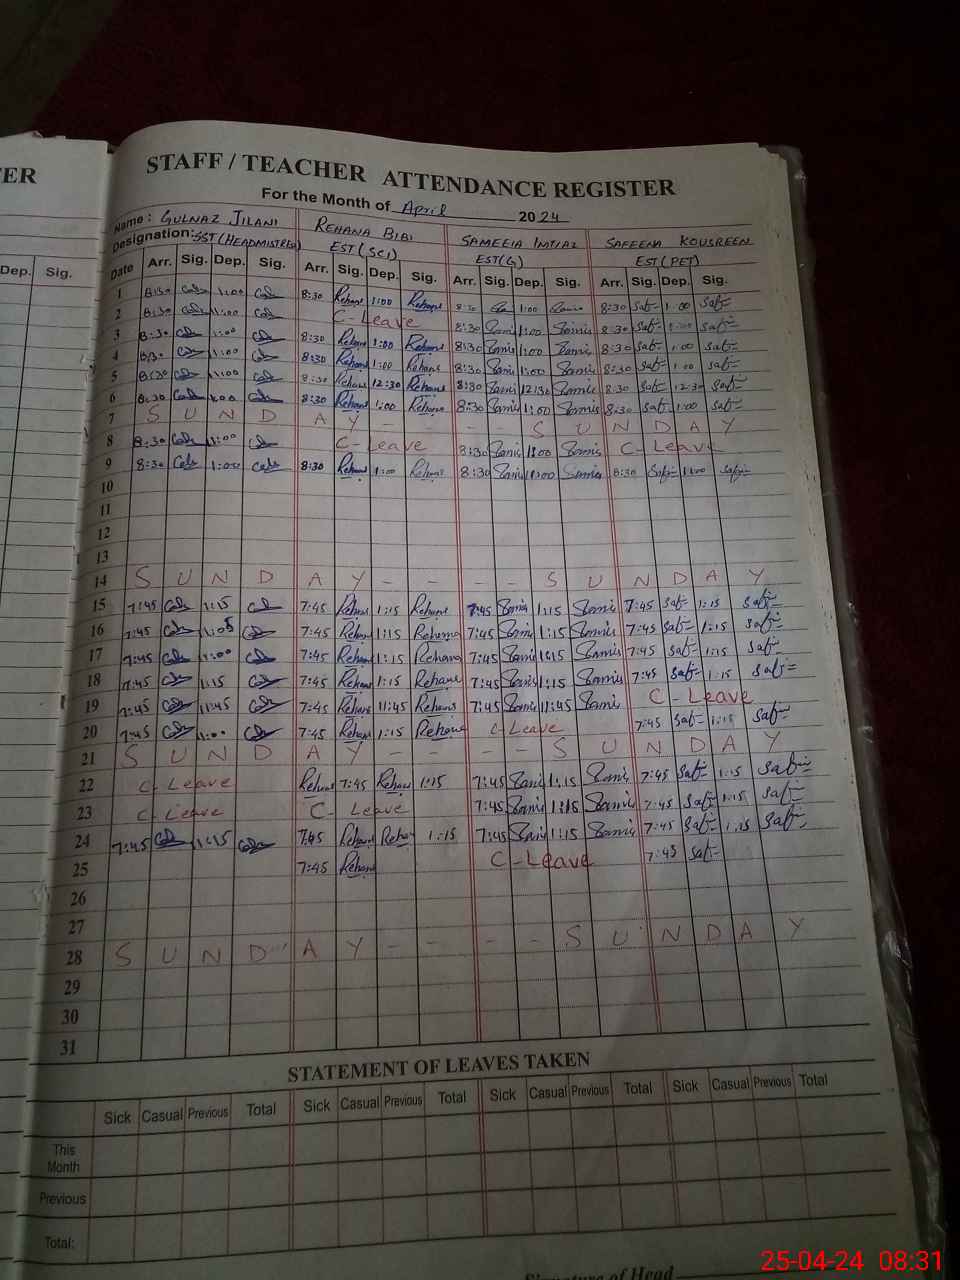 ER
STAFF / TEACHER ATTENDANCE REGISTER
For the Month of April 2024
Name: GULNAZ JILANI REHANA BIBI SAMEEIA IMTIAZ SAFEENA KOUSREEN
Designation: SST (HEADMISTRESS) EST (SCI) EST(G) EST (PET)
Dep. Sig. Date Arr. Sig. Dep. Sig. Arr. Sig. Dep. Sig. Arr. Sig. Dep. Sig. Arr. Sig. Dep. Sig.
1 8:30 1:00 8:30 Rehana 1:00 Rehana 8:30 1:00 8:30 Saf 1:00 Saf
2 8:30 1:00 C-Leave 8:30 Samia 1:00 Samia 8:30 Saf 1:00 Saf
3 8:30 1:00 8:30 Rehana 1:00 Rehana 8:30 Samia 1:00 Samia 8:30 Saf 1:00 Saf
4 8:30 1:00 8:30 Rehana 1:00 Rehana 8:30 Samia 1:00 Samia 8:30 Saf 1:00 Saf
5 8:30 1:00 8:30 Rehana 12:30 Rehana 8:30 Samia 12:30 Samia 8:30 Saf 12:30 Saf
6 8:30 1:00 8:30 Rehana 1:00 Rehana 8:30 Samia 1:00 Samia 8:30 Saf 1:00 Saf
7 S U N D A Y - - - - S U N D A Y
8 8:30 1:00 C-Leave 8:30 Samia 1:00 Samia C-Leave
9 8:30 1:00 8:30 Rehana 1:00 Rehana 8:30 Samia 1:00 Samia 8:30 Saf 1:00 Saf
10
11
12
13
14 S U N D A Y - - - S U N D A Y
15 7:45 1:15 7:45 Rehana 1:15 Rehana 7:45 Samia 1:15 Samia 7:45 Saf 1:15 Saf
16 7:45 1:05 7:45 Rehana 1:15 Rehana 7:45 Samia 1:15 Samia 7:45 Saf 1:15 Saf
17 7:45 1:00 7:45 Rehana 1:15 Rehana 7:45 Samia 1:15 Samia 7:45 Saf 1:15 Saf
18 7:45 1:15 7:45 Rehana 1:15 Rehana 7:45 Samia 1:15 Samia 7:45 Saf 1:15 Saf
19 7:45 11:45 7:45 Rehana 11:45 Rehana 7:45 Samia 11:45 Samia C-Leave
20 7:45 1:00 7:45 Rehana 1:15 Rehana C-Leave 7:45 Saf 1:15 Saf
21 S U N D A Y - - - - S U N D A Y
22 C-Leave Rehana 7:45 Rehana 1:15 7:45 Samia 1:15 Samia 7:45 Saf 1:15 Saf
23 C-Leave C-Leave 7:45 Samia 1:15 Samia 7:45 Saf 1:15 Saf
24 7:45 1:15 7:45 Rehana Rehana 1:15 7:45 Samia 1:15 Samia 7:45 Saf 1:15 Saf
25 7:45 Rehana C-Leave 7:45 Saf
26
27
28 S U N D A Y - - - - S U N D A Y
29
30
31
STATEMENT OF LEAVES TAKEN
Sick Casual Previous Total Sick Casual Previous Total Sick Casual Previous Total Sick Casual Previous Total
This Month
Previous
Total:
Signature of Head
25-04-24 08:31